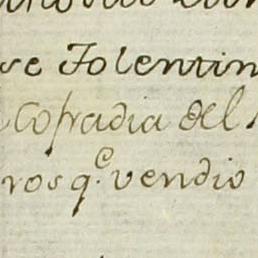 se Tolentin
Cofradia del
ros q.e vendio